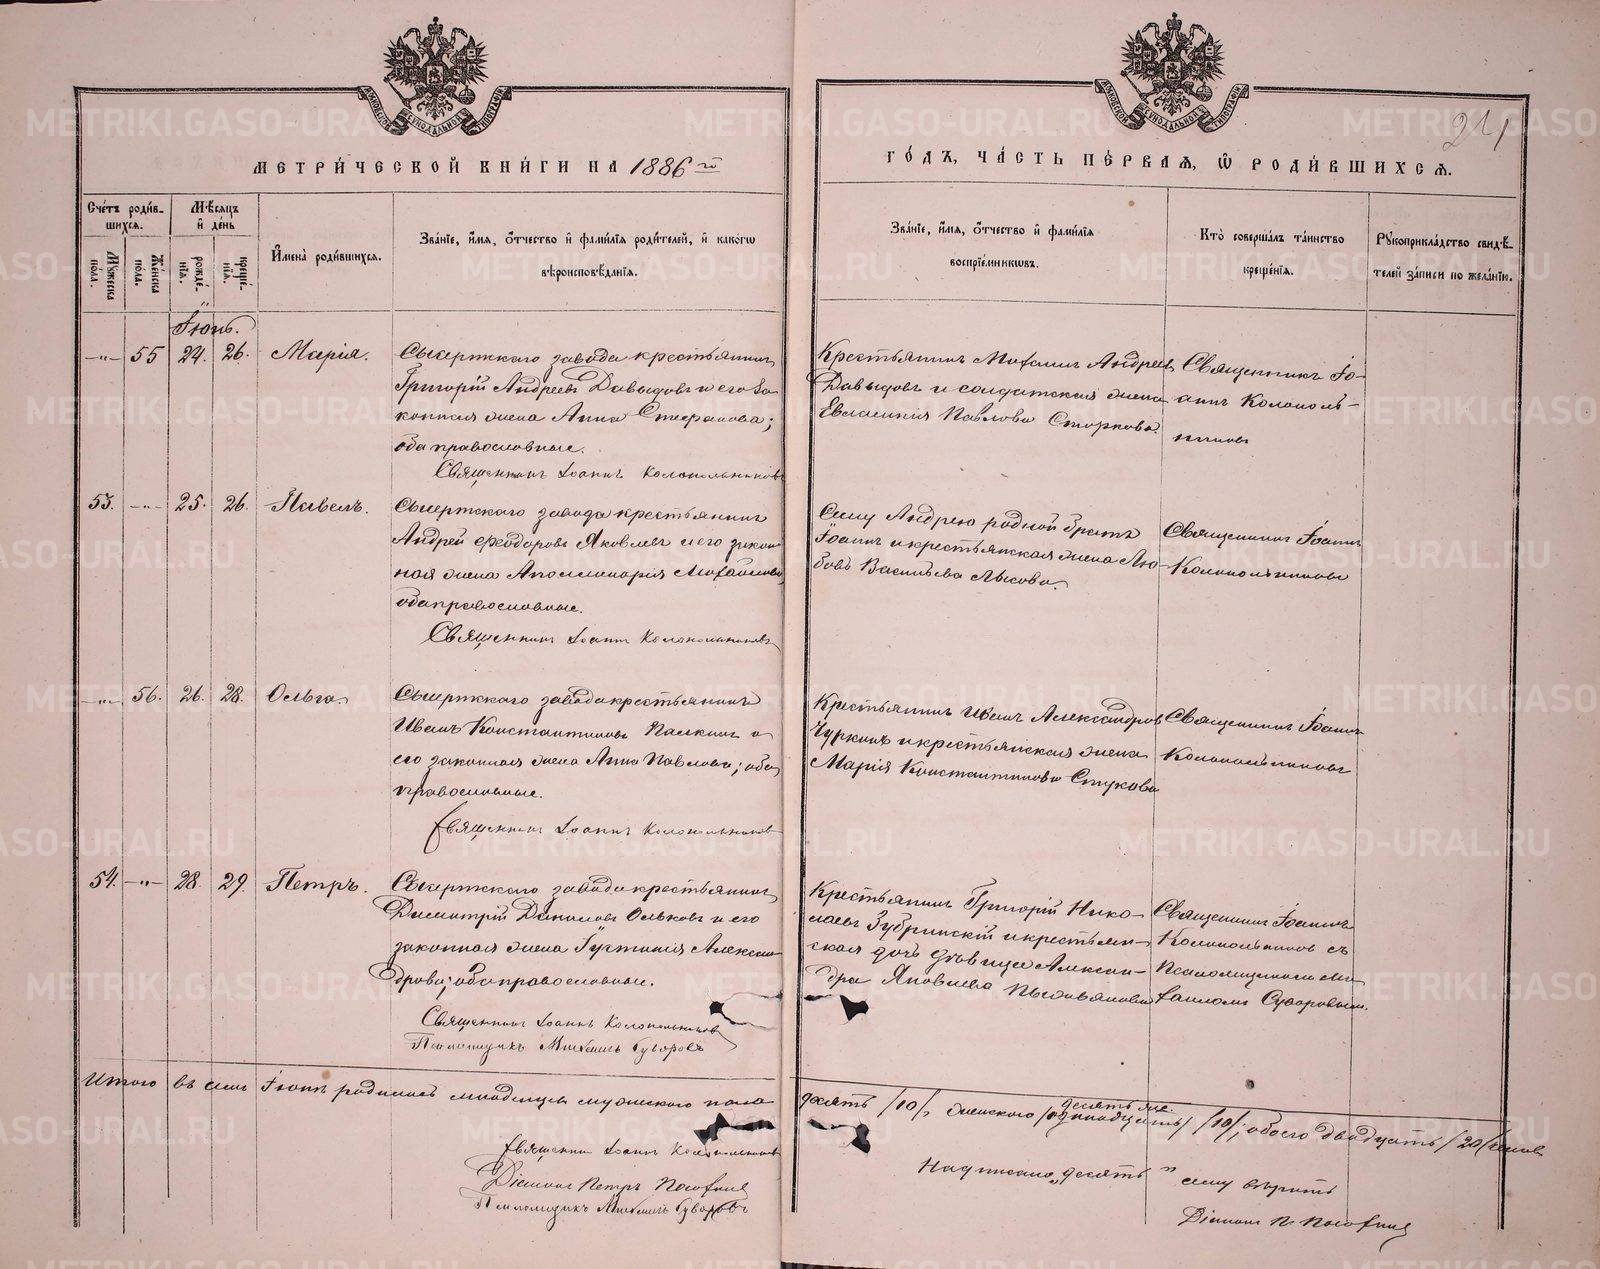 МЕТРИ́ЧЕСКОЙ КНИ́ГИ НА 1886 го́
ГО́ДЪ, ЧА́СТЬ ПЕ́РВАѦ, Ѡ҆ РОДИ́ВШИХСѦ.
21
Сче́тъ роди́в-
шихсѧ.
Мꙋжеска по́ла.
Же́нска по́ла.
Мѣ́сѧцъ
и҆ де́нь
рожде́-
нїѧ.
креще́-
нїѧ.
И҆мена̀ роди́вшихсѧ.
Зва́нїе, и҆́мѧ, ѻ҆́тчество и҆ фами́лїѧ роди́телей, и҆ како́гѡ
вѣроисповѣ́данїѧ.
Зва́нїе, и҆́мѧ, ѻ҆́тчество и҆ фами́лїѧ
воспрїе́мникѡвъ.
Кто̀ соверша́лъ та́инство
креще́нїѧ.
Рꙋкоприкла́дство свидѣ́-
телей за́писи по жела́нїю.
Іюнь.
-„- 55 24. 26. Марія.
Сысертскаго завода крестьянинъ
Григорій Андреевъ Давыдовъ и его за-
конная жена Анна Стефанова;
оба православные.
Священникъ Іоаннъ Колокольниковъ
Крестьянинъ Михаилъ Андреевъ
Давыдовъ и солдатская жена
Евгенія Павлова
Священникъ Іо-
аннъ Колоколь-
никовъ
53. -„- 25. 26. Павелъ.
Сысертскаго завода крестьянинъ
Андрей Феодоровъ Яковлевъ и его закон-
ная жена Аполлинарія Михайлова
оба православные.
Священникъ Іоаннъ Колокольниковъ
Сему Андрею родной братъ
Іоаннъ и крестьянская жена Лю-
бовь Васильева Лысова.
Священникъ Іоаннъ
Колокольниковъ
-„- 56. 26. 28. Ольга.
Сысертскаго завода крестьянинъ
Иванъ Константиновъ Палкинъ и
его законная жена Анна Павлова; оба
православные.
Священникъ Іоаннъ Колокольниковъ
Крестьянинъ Иванъ Александровъ
Чуркинъ и крестьянская жена
Марія Константинова Стукова
Священникъ Іоаннъ
Колокольниковъ
54. -„- 28. 29. Петръ.
Сысертскаго завода крестьянинъ
Димитрій Даниловъ Ольковъ и его
законная жена Іустинія Алексан-
дрова; оба православные.
Священникъ Іоаннъ Колокольниковъ
Псаломщикъ Михаилъ Суворовъ
Крестьянинъ Григорій Нико-
лаевъ Зубринскій и крестьян-
ская дочь дѣвица Алексан-
дра Яковлева
Священникъ Іоаннъ
Колокольниковъ съ
Псаломщикомъ Ми-
хаиломъ Суворовымъ.
Итого въ семъ Іюнѣ родилось младенцевъ мужескаго пола
десять /10/, женскаго /одиннадцать/ десять же /10/; обоего двадцать /20/ человѣкъ
Священникъ Іоаннъ Колокольниковъ
Діаконъ Петръ
Псаломщикъ Михаилъ Суворовъ
Надписано „десять“ сему вѣрить
Діаконъ П.
METRIKI.GASO-URAL.RU